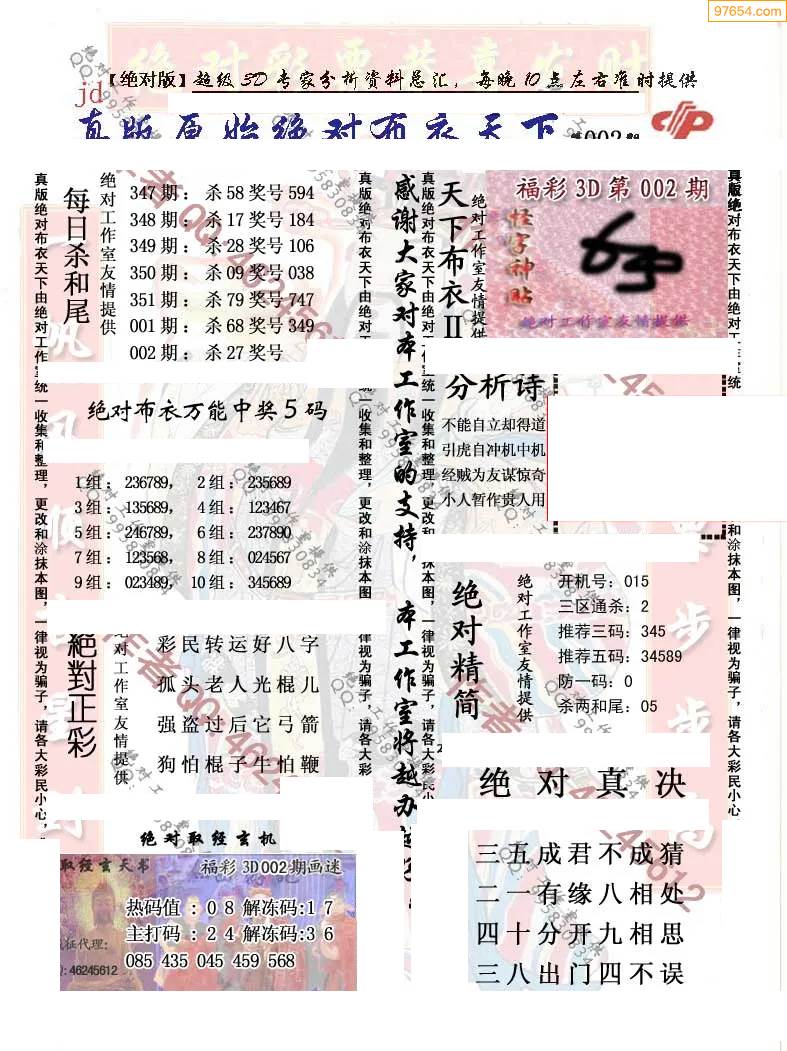 97654.com
【绝对版】超级3D专家分析资料总汇，每晚10点左右准时提供
jd
真版原始绝对布衣天下
真版绝对布衣天下由绝对工作室统一收集和整理，更改和涂抹本图，一律视为骗子，请各大彩民小心，
每日杀和尾
绝对工作室友情提供
347期：杀58奖号594
348期：杀17奖号184
349期：杀28奖号106
350期：杀09奖号038
351期：杀79奖号747
001期：杀68奖号349
002期：杀27奖号
绝对布衣万能中奖5码
1组：236789， 2组：235689
3组：135689， 4组：123467
5组：246789， 6组：237890
7组：123568， 8组：024567
9组：023489， 10组：345689
絕對正彩
绝对工作室友情提供
彩民转运好八字
孤头老人光棍儿
强盗过后它弓箭
狗怕棍子牛怕鞭
绝对取经玄机
取经玄天书
福彩3D002期画迷
热码值：08解冻码:17
主打码：24解冻码:36
085 435 045 459 568
征代理：
46245612
真版绝对布衣天下由绝对工
统一收集和整理，更改和涂抹本图，一律视为骗子，请各大彩
感谢大家对本工作室的支持，本工作室将越办越
真版绝对布衣天下由绝对工作室统一收集和整理，更改和涂抹本图，一律视为骗子，请各大彩民小
天下布衣II
绝对工作室友情提供
福彩3D第002期
怪字神贴
绝对工作室友情提供
分析诗
不能自立却得道
引虎自冲机中机
经贼为友谋惊奇
小人暂作贵人用
绝对精简
绝对工作室友情提供
开机号：015
三区通杀：2
推荐三码：345
推荐五码：34589
防一码：0
杀两和尾：05
绝对真决
三五成君不成猜
二一有缘八相处
四十分开九相思
三八出门四不误
真版绝对布衣天下由绝对工作室统
和涂抹本图，一律视为骗子，请各大彩民小心，